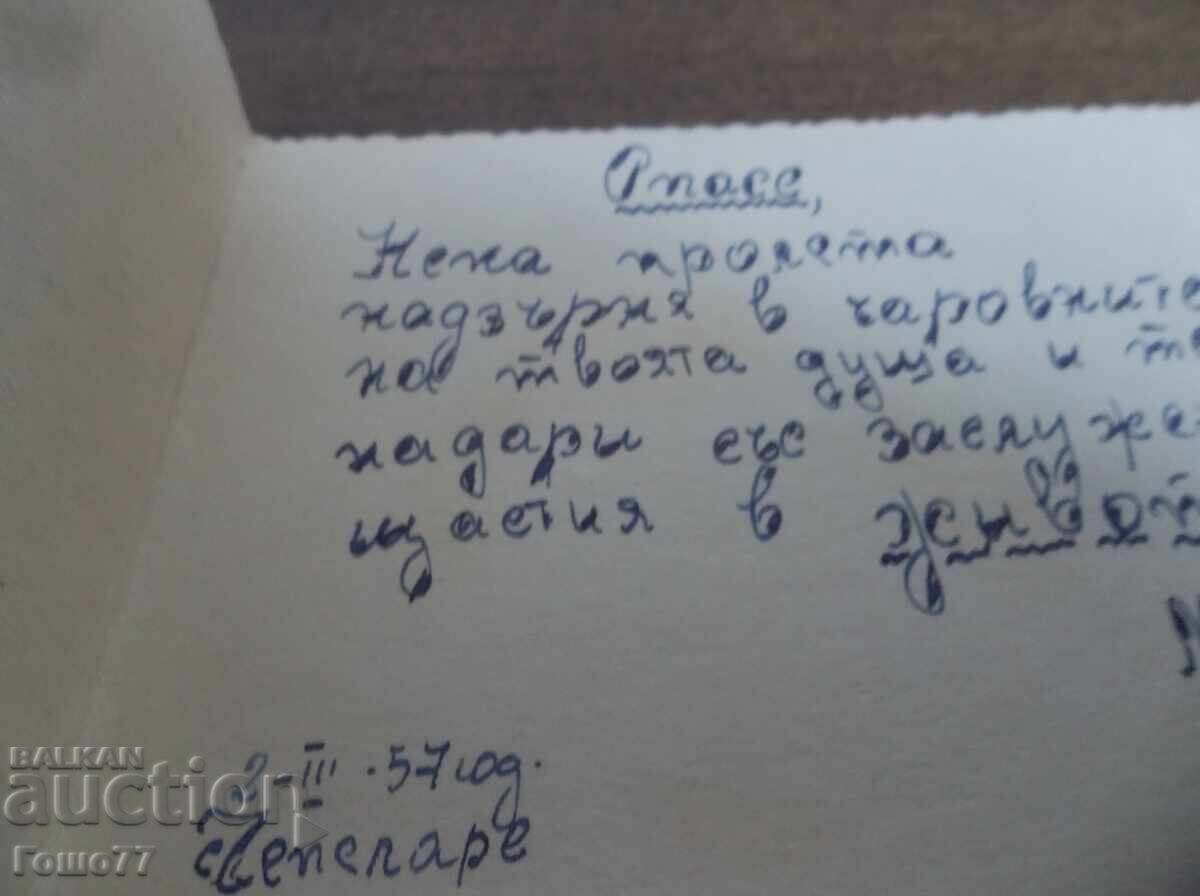 Нека пролетта
надзърня в чаровните
на твоята душа и
надари със заслуже
щастия в живот
2-III.57 год.
BALKAN
auction
Гошо77